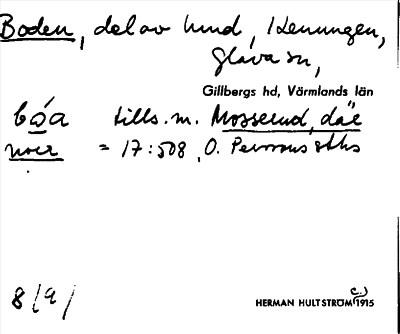 Boden, del av lund, Kenungen,
Glava sn,
Gillbergs hd, Värmlands län
bóa tills. m. Mosserud, däe
noer = 17:508, O. Perssons äths
8/9/
HERMAN HULTSTRÖM (c.) 1915